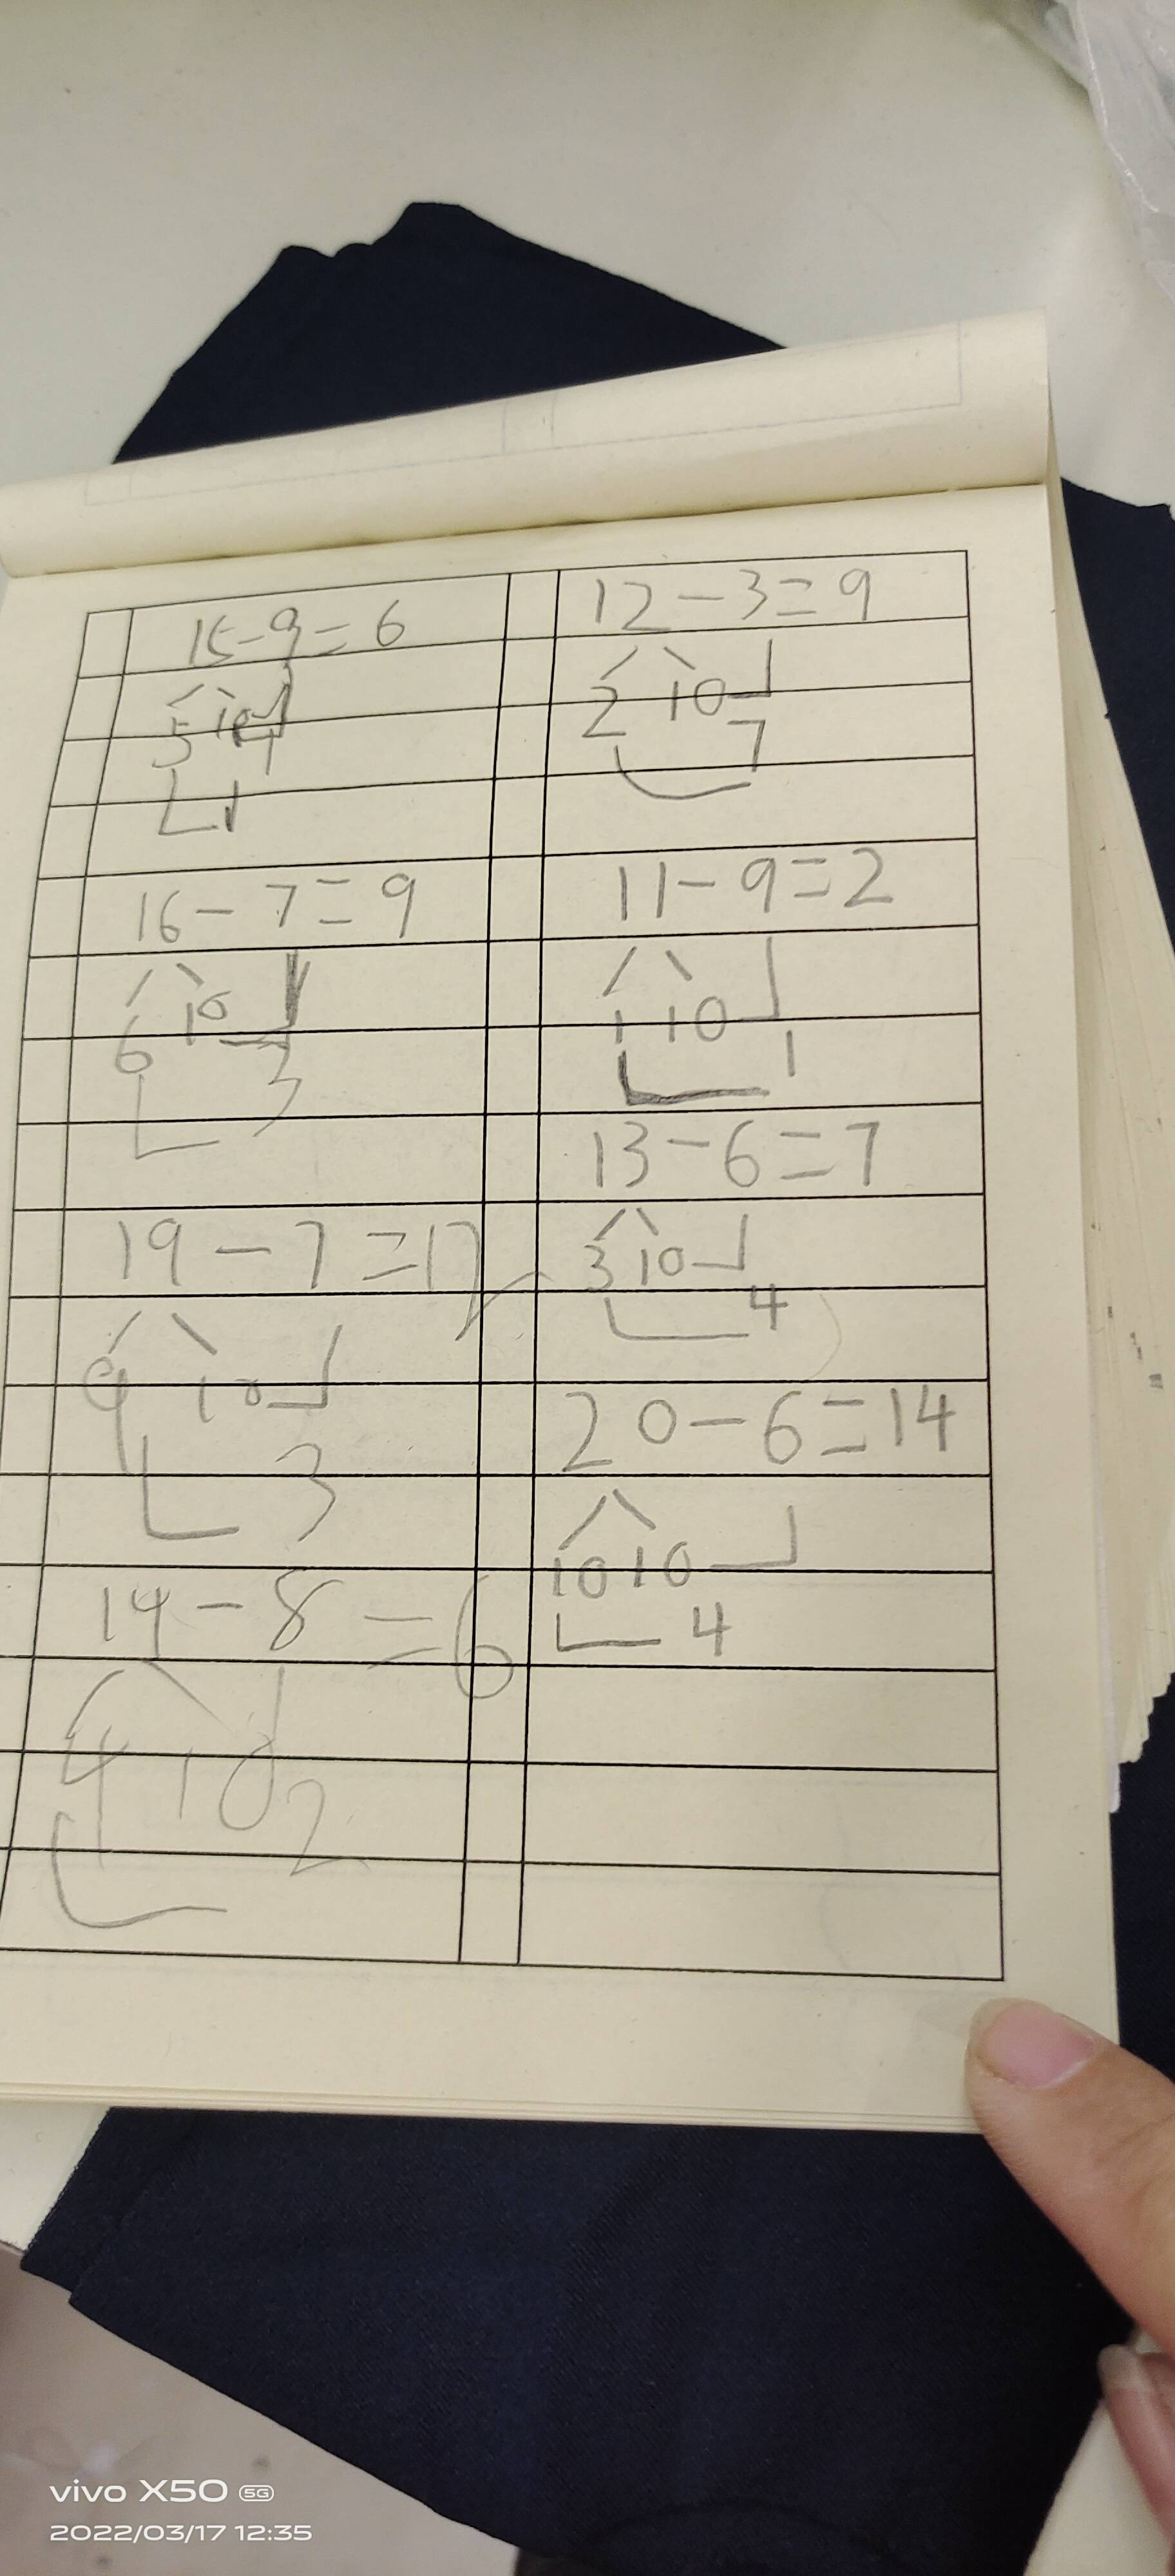 15-9=6
5 10
4
16-7=9
6 10
3
19-7=12
9 10
3
14-8=6
4 10
2
12-3=9
2 10
7
11-9=2
1 10
1
13-6=7
3 10
4
20-6=14
10 10
4
vivo X50 5G
2022/03/17 12:35